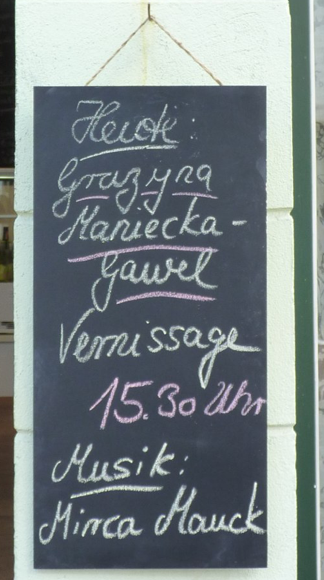 Heute:
Grazyna
Maniecka-
Gawel
Vernissage
15.30 Uhr
Musik:
Mirca Mauck